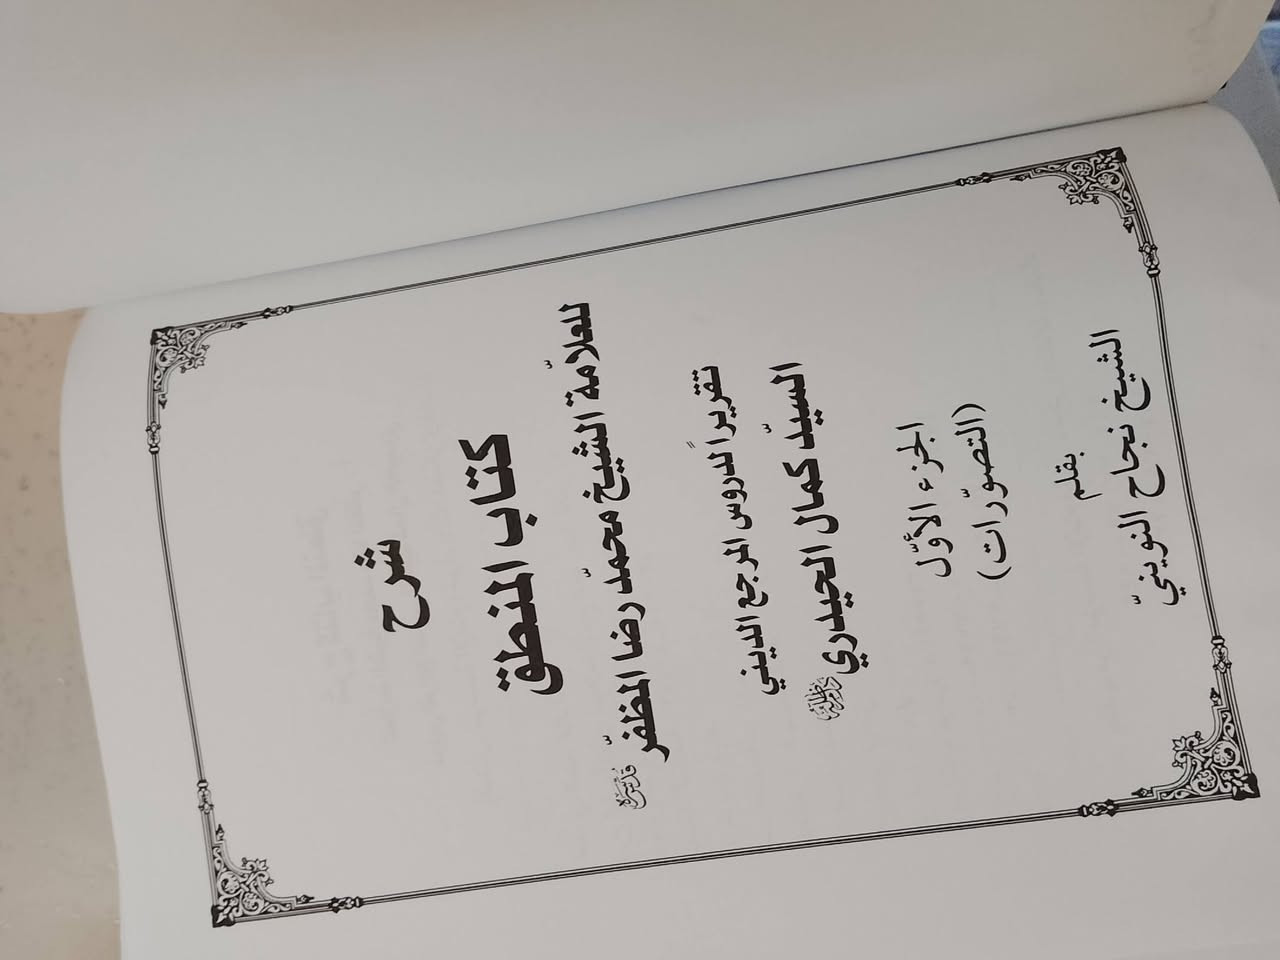 شرح
كتاب المنطق
للعلاّمة الشيخ محمّد رضا المظفّر قدّس سرّه
تقريراً لدروس المرجع الديني
السيّد كمال الحيدري دام ظله
الجزء الأوّل
(التصوّرات)
بقلم
الشيخ نجاح النوينيّ